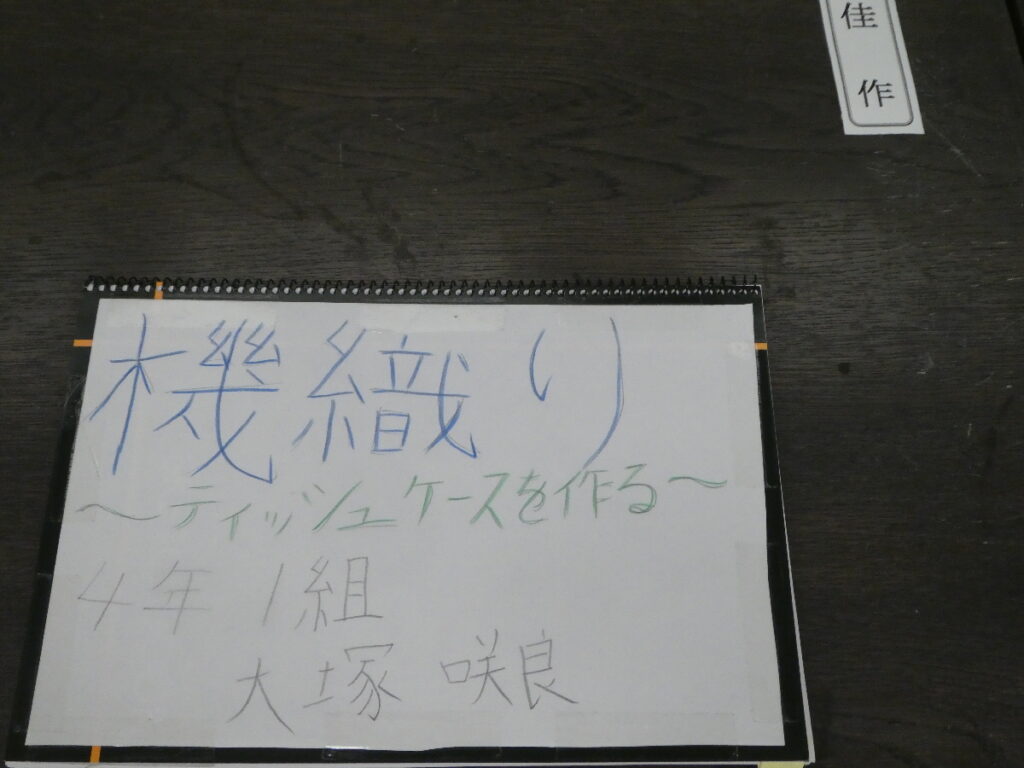 佳作
機織り
～ティッシュケースを作る～
4年1組
大塚 咲良